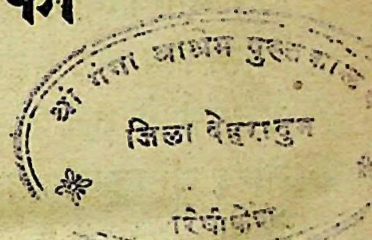 का
श्री गंगा आश्रम पुस्तकालय
जिला देहरादुन